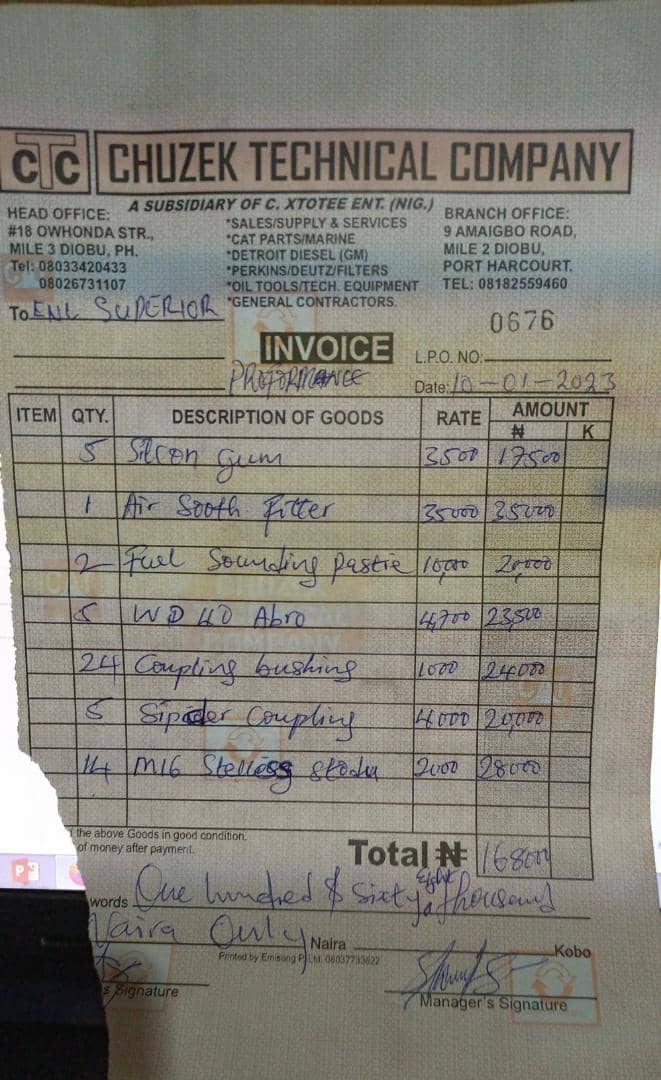 CTC CHUZEK TECHNICAL COMPANY
A SUBSIDIARY OF C. XTOTEE ENT. (NIG.)
HEAD OFFICE:
#18 OWHONDA STR.,
MILE 3 DIOBU, PH.
Tel: 08033420433
08026731107
*SALES/SUPPLY & SERVICES
*CAT PARTS/MARINE
*DETROIT DIESEL (GM)
*PERKINS/DEUTZ/FILTERS
*OIL TOOLS/TECH. EQUIPMENT
*GENERAL CONTRACTORS.
BRANCH OFFICE:
9 AMAIGBO ROAD,
MILE 2 DIOBU,
PORT HARCOURT.
TEL: 08182559460
To ENL SUPERIOR
0676
INVOICE
L.P.O. NO:
PROFORMANCE
Date: 10-01-2023
ITEM QTY. DESCRIPTION OF GOODS RATE AMOUNT
₦ K
5 Silicon gum 3500 17500
1 Air Sooth Fitter 35000 35000
2 Fuel Sounding Pastie 10,000 20,000
5 WD 40 Abro 4,700 23,500
24 Coupling bushing 1000 24000
5 Sipider Coupling 4000 20,000
14 M16 Stelless 2000 28000
the above Goods in good condition.
of money after payment.
Total ₦ 168000
words One hundred & Sixty Eight thousand
Naira Only
Naira Kobo
Printed by Emisong P. Ltd. 08037733622
s Signature
Manager's Signature